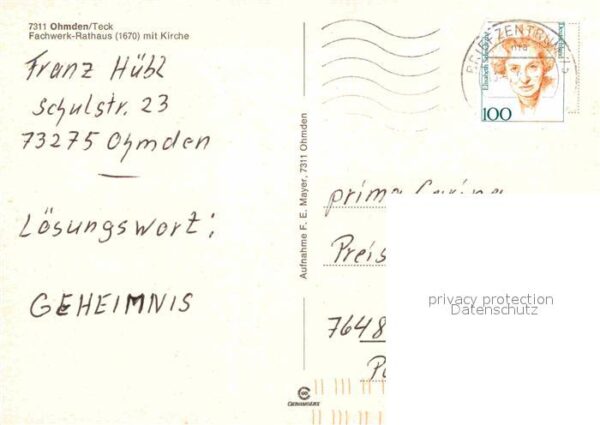 7311 Ohmden/Teck
Fachwerk-Rathaus (1670) mit Kirche
Franz Hübl
Schulstr. 23
73275 Ohmden
Lösungswort:
GEHEIMNIS
Aufnahme F. E. Mayer, 7311 Ohmden
BRIEFZENTRUM
Deutschland
Elisabeth Schwarzhaupt
100
prima
Preis
7648
privacy protection
Datenschutz